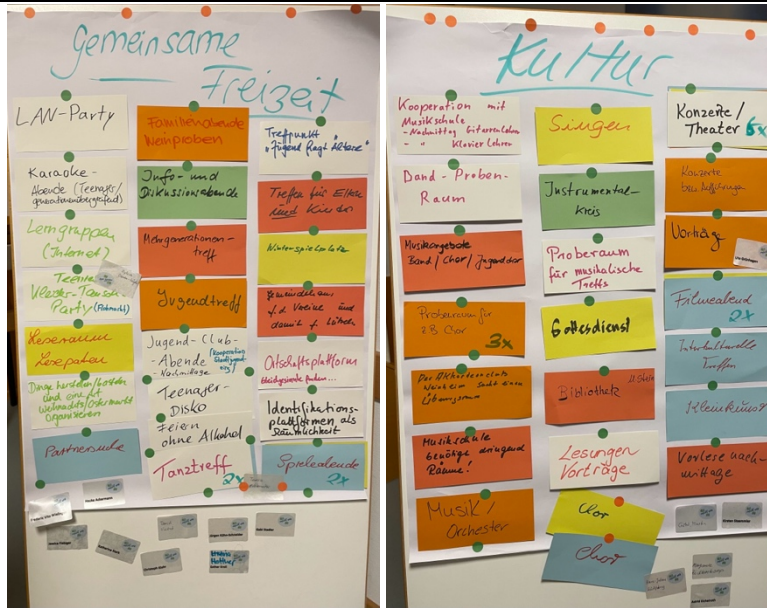 Gemeinsame
Freizeit
LAN-Party
Karaoke-
Abende (Teenager/
generationenübergreifend)
Lerngruppen
(Internet)
Party (Flohmarkt)
Leseraum
Lesepaten
Dinge herstellen/basteln
und eine Art
Weihnachts/Ostermarkt
organisieren
Partnersuche
Familienabende
Weinproben
Info- und
Diskussionsabende
Mehrgenerationen-
treff
Jugendtreff
Jugend-Club-
-Abende
-Nachmittage
Teenager-
DISKO
Feiern
ohne Alkohol
Tanztreff 2x
Treffpunkt
"Jugend fragt Ältere"
Treffen für Eltern
und Kinder
Winterspielplatz
f.d. Vereine und
damit f.
Ortschaftsplattform
Identifikations-
plattformen als
Räumlichkeit
Spieleabende
2x
Kultur
Kooperation mit
Musikschule
- Nachmittag Gitarrenlehrer
- " Klavierlehrer
Band-Proben-
Raum
Musikangebote
Band/Chor/Jugendchor
Proberaum für
zB Chor 3x
Der Akkordeonclub
Weinheim sucht einen
Übungsraum
Musikschule
benötigt dringend
Räume!
Musik/
Orchester
Singen
Instrumental-
kreis
Proberaum
für musikalische
Treffs
Gottesdienst
Bibliothek
Lesungen
Vorträge
Chor
Chor
Konzerte/
Theater 5x
Konzerte
Vorträge
Filmeabend
2x
Interkulturelle
Treffen
Kleinkunst
Vorlesenach-
mittage